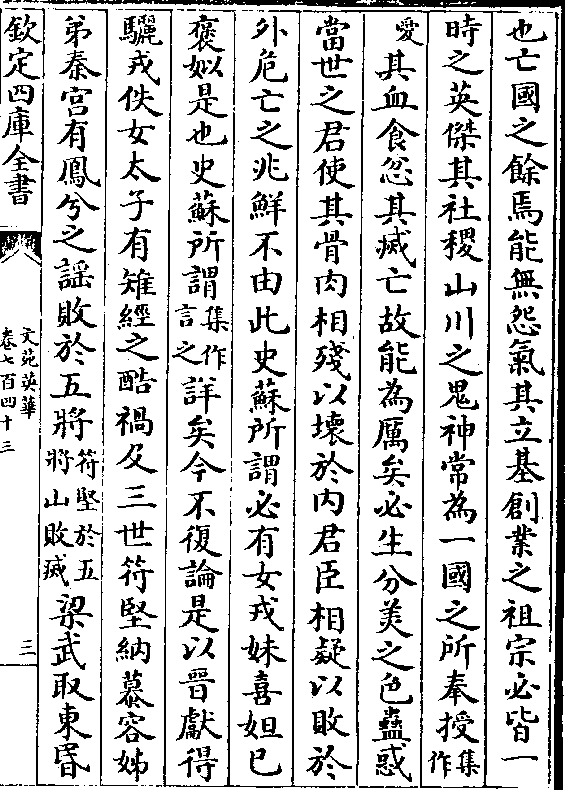 也亡國之餘焉能無怨氣其立基創業之祖宗必皆一
時之英傑其社稷山川之鬼神常為一國之所奉授集作
愛其血食忿其滅亡故能為厲矣必生分美之色蠱惑
當世之君使其骨肉相殘以壞於內君臣相疑以敗於
外危亡之兆鮮不由此史蘇所謂必有女戎妹喜妲己
褒姒是也史蘇所謂集作言之詳矣今不復論是以晉獻得
驪戎佚女太子有雉經之酷禍及三世苻堅納慕容姊
弟秦宮有鳳兮之謡敗於五將苻堅於五將山敗滅梁武取東昏
欽定四庫全書
文苑英華
卷七百四十三
三